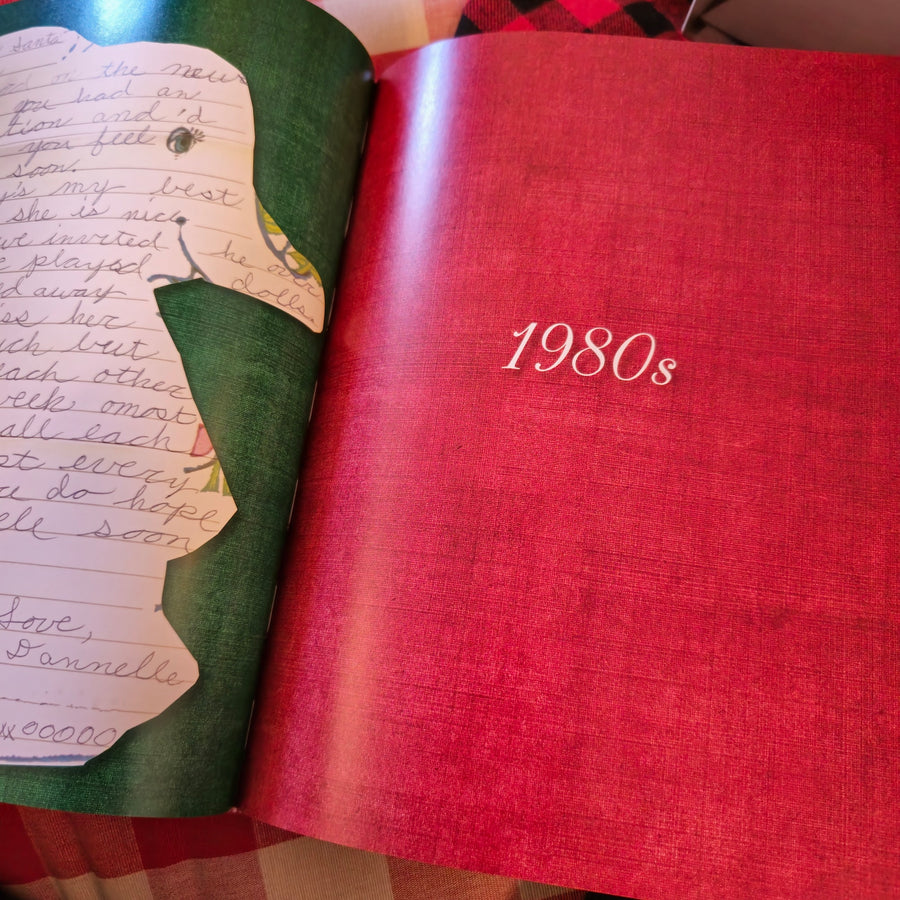 Santa
on the news
you had an
tion and I'd
you feel
soon.
y's my best
she is nice
we invited he our
e played dolls.
ed away
ss her
uch but
each other
eek omost
all each
st every
u do hope
ell soon
Love,
Dannelle
xx00000
1980s